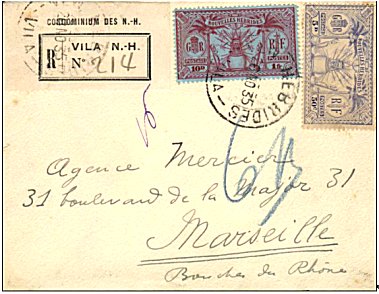 CONDOMINIUM DES N.-H.
R
VILA N.-H.
N° 214
NOUVELLES HEBRIDES
G R
R F
POSTAGE
POSTES
10D
1F
HEBRIDES
VILA
5D
50c
R F
Agence Mercier
31 boulevard de la Major 31
Marseille
Bouches du Rhône